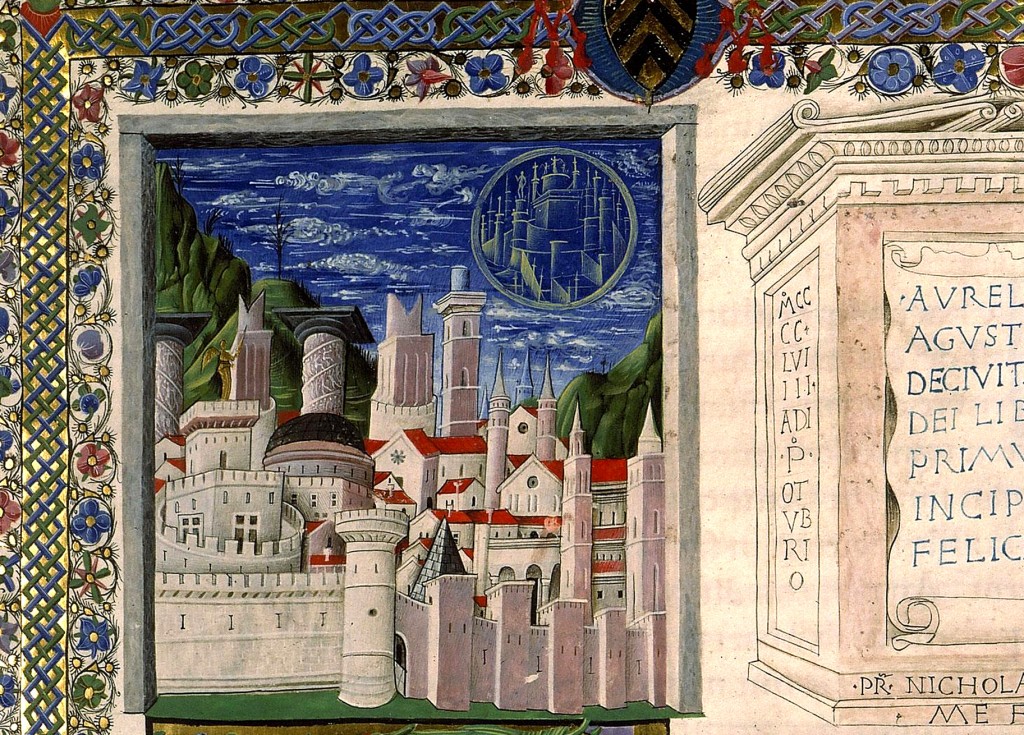 M̊CC
CC+
LVI
III·
ADI
·P̊·
OT
VB
RI
O
·AVREL
AGVST
DECIVIT
DEI LIB
PRIMV
INCIP
FELIC
·PR̃· NICHOLA
ME F